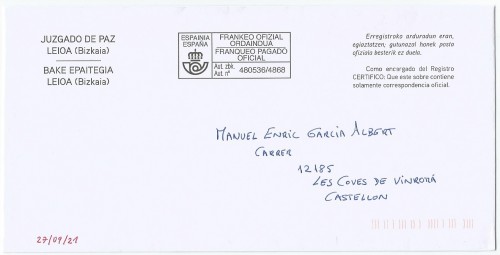 JUZGADO DE PAZ
LEIOA (Bizkaia)
BAKE EPAITEGIA
LEIOA (Bizkaia)
ESPAINIA
ESPAÑA
FRANKEO OFIZIAL
ORDAINDUA
FRANQUEO PAGADO
OFICIAL
Aut. zbk.
Aut. nº
480536/4868
Erregistroko arduradun eran,
egiaztatzen, gutunazal honek posta
ofiziala besterik ez duela.
Como encargado del Registro
CERTIFICO: Que este sobre contiene
solamente correspondencia oficial.
MANUEL ENRIC GARCIA ALBERT
CARRER
12185
LES COVES DE VINROMÁ
CASTELLON
27/09/21